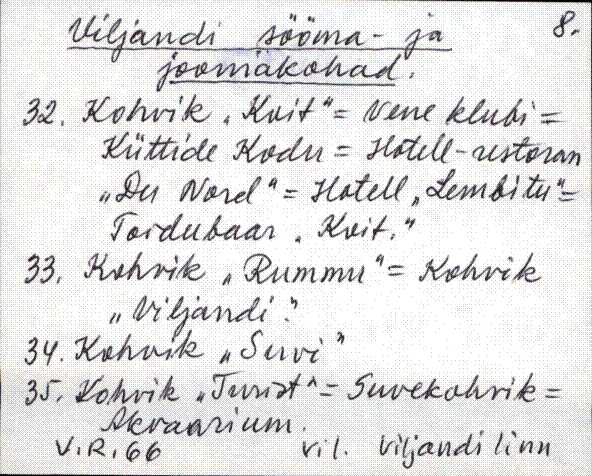 Viljandi sööma- ja 8.
joomakohad.
32. Kohvik „Koit" = Vene klubi =
Küttide Kodu = Hotell-restoran
„Du Nord" = Hotell „Lembitu" =
Toidubaar „Koit."
33. Kohvik „Rummu" = Kohvik
„Viljandi."
34. Kohvik „Suvi"
35. Kohvik „Turist" = Suvekohvik =
Akvaarium.
V.R. 66 vil. Viljandi linn